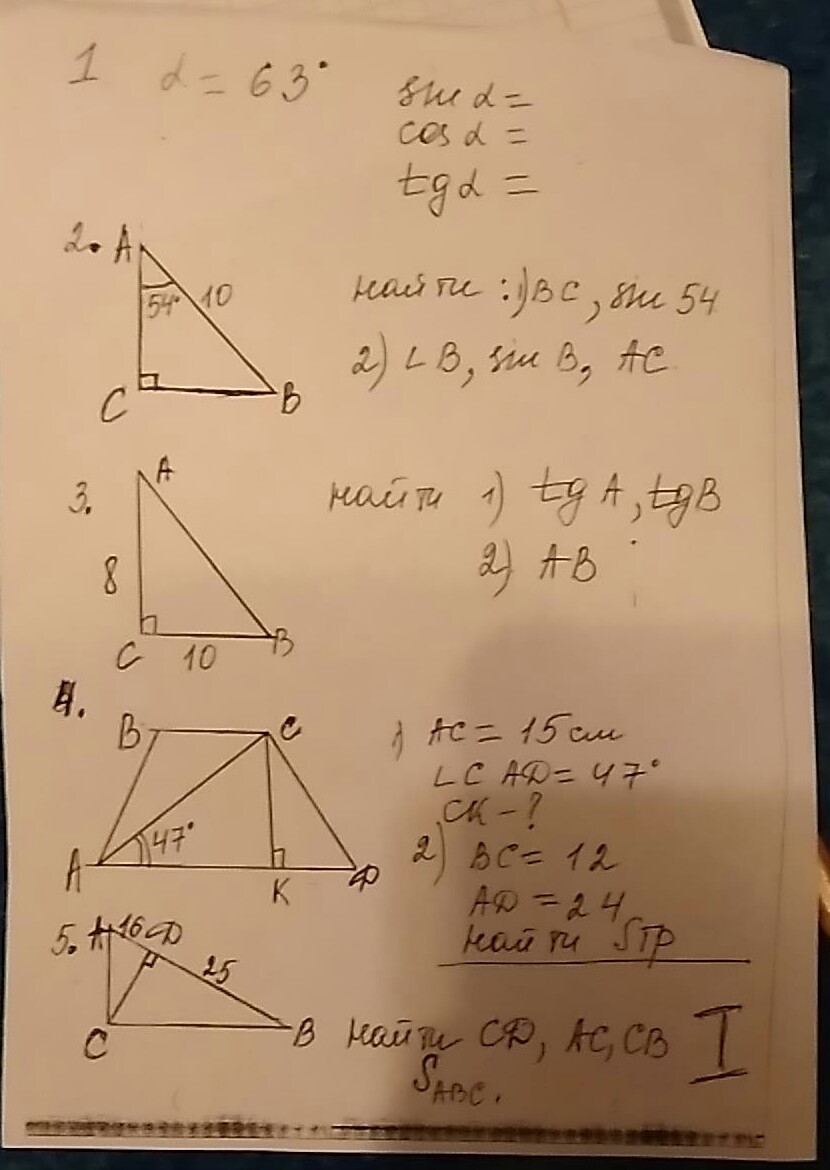 1 α = 63°
sin α =
cos α =
tg α =
2. A
54° 10
C B
найти : 1) BC, sin 54
2) ∠B, sin B, AC
3. A
8
C 10 B
найти 1) tg A, tg B
2) AB
4.
B C
47°
A K D
1) AC = 15 см
∠CAD = 47°
CK - ?
2) BC = 12
AD = 24
найти Sтр
5. A 16 D
25
C B
найти CD, AC, CB
SABC.
I